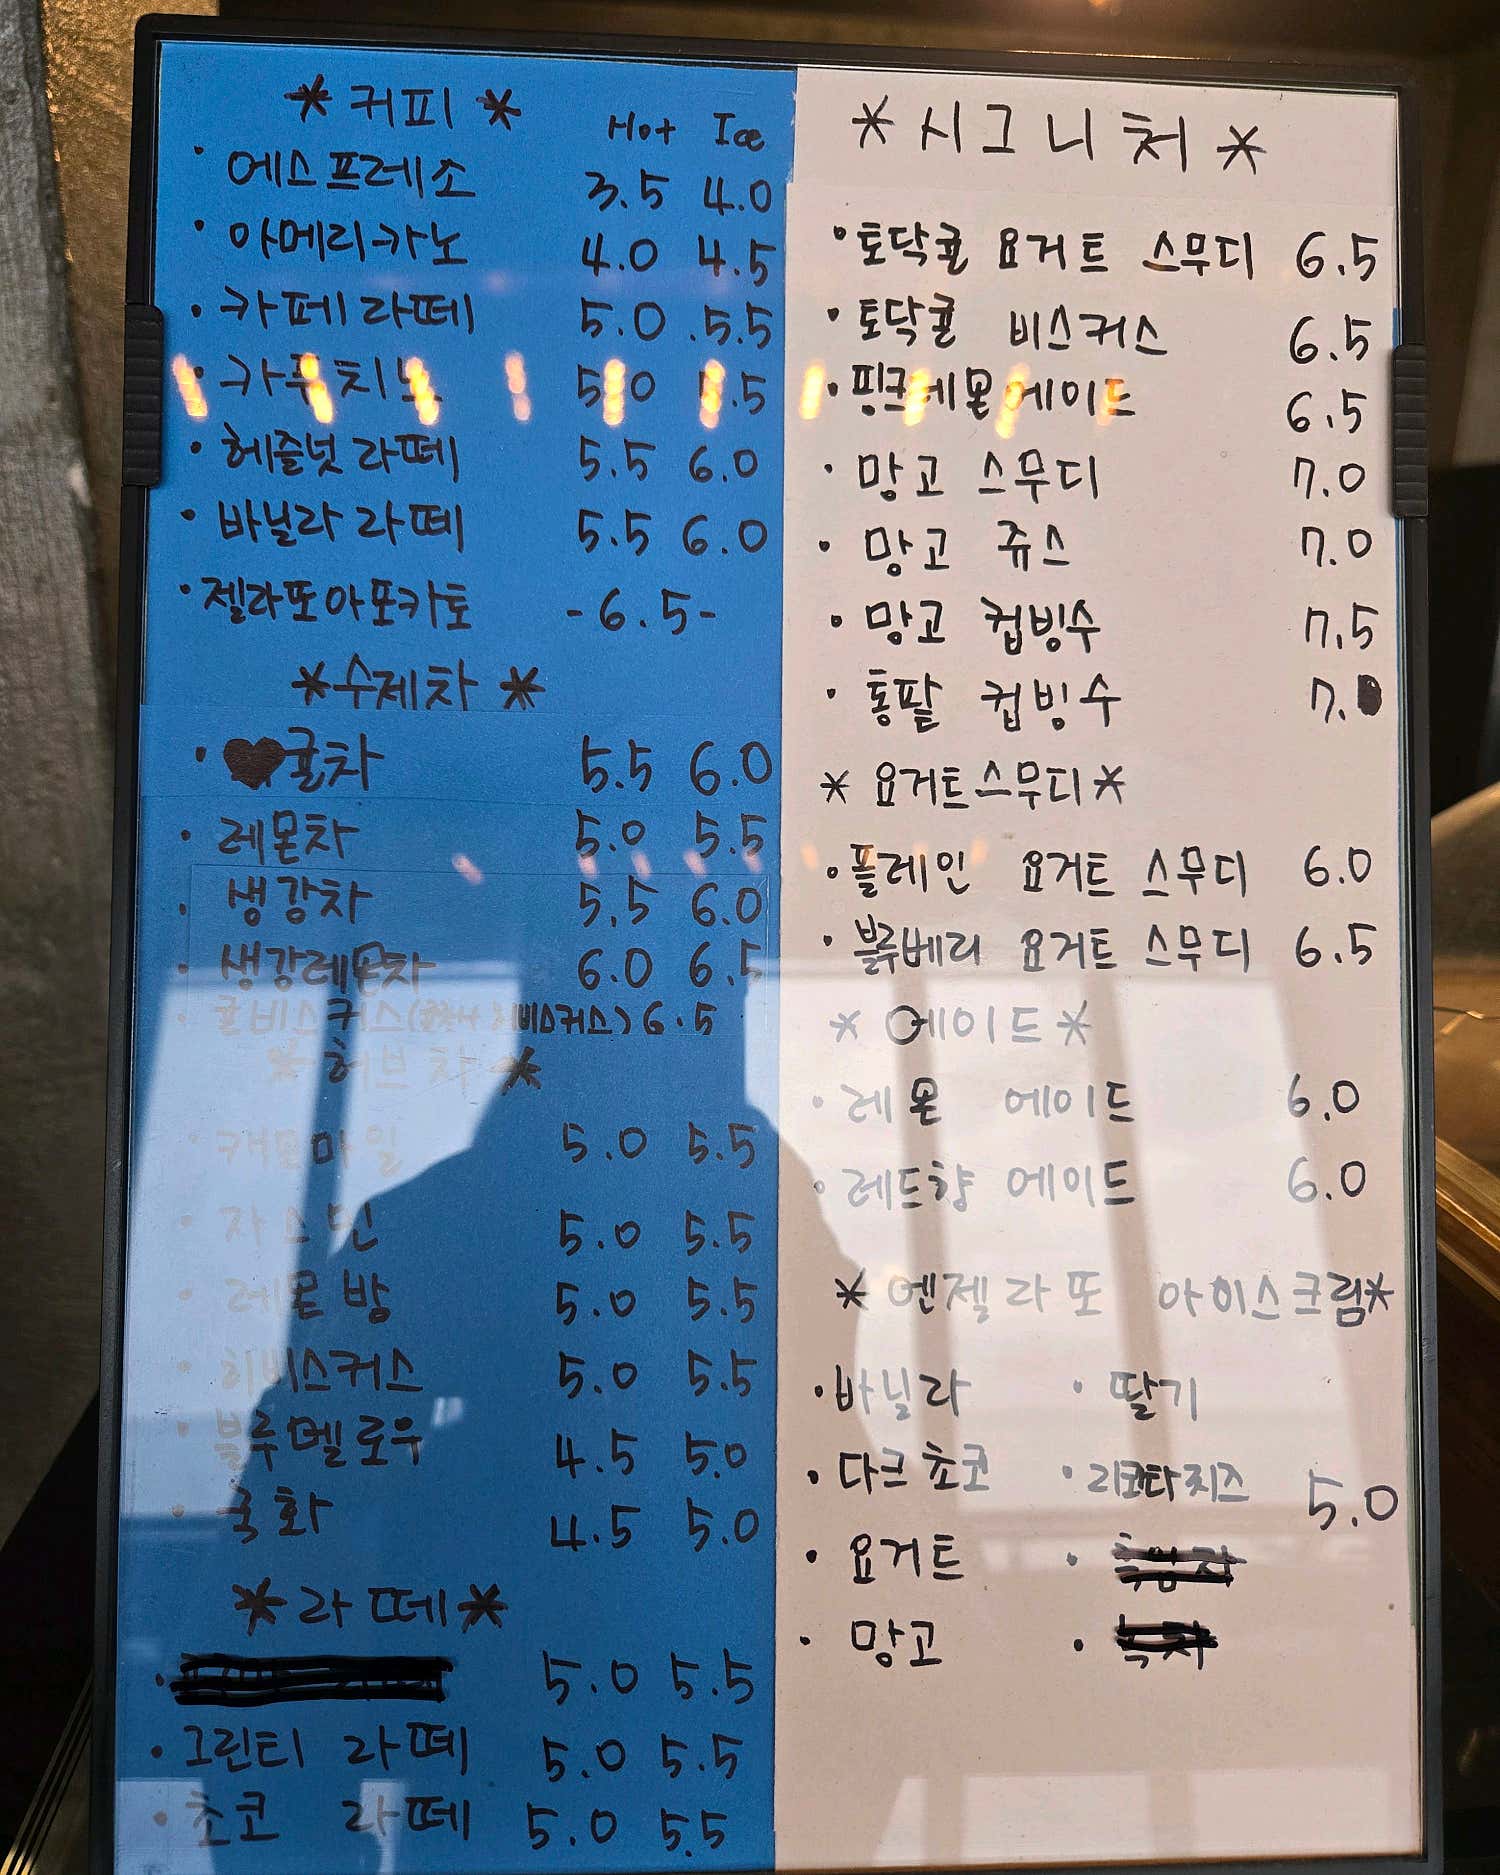 *커피* Hot Ice
· 에스프레소 3.5 4.0
· 아메리카노 4.0 4.5
· 카페라떼 5.0 5.5
· 카푸치노 5.0 5.5
· 헤즐넛 라떼 5.5 6.0
· 바닐라 라떼 5.5 6.0
· 젤라또아포카토 -6.5-
*수제차*
· ♥귤차 5.5 6.0
· 레몬차 5.0 5.5
· 생강차 5.5 6.0
· 생강레몬차 6.0 6.5
· 귤비스커스( 히비스커스) 6.5
*허브차*
· 캐모마일 5.0 5.5
· 자스민 5.0 5.5
· 레몬밤 5.0 5.5
· 히비스커스 5.0 5.5
· 블루멜로우 4.5 5.0
· 국화 4.5 5.0
*라떼*
· 5.0 5.5
· 그린티 라떼 5.0 5.5
· 초코 라떼 5.0 5.5
*시그니처*
· 토닥귤 요거트 스무디 6.5
· 토닥귤 비스커스 6.5
· 핑크레몬에이드 6.5
· 망고 스무디 7.0
· 망고 쥬스 7.0
· 망고 컵빙수 7.5
· 통팥 컵빙수 7.0
*요거트스무디*
· 플레인 요거트 스무디 6.0
· 블루베리 요거트 스무디 6.5
*에이드*
· 레몬 에이드 6.0
· 레드향 에이드 6.0
*엔젤라또 아이스크림*
· 바닐라 · 딸기
· 다크초코 · 리코타치즈 5.0
· 요거트 ·
· 망고 ·